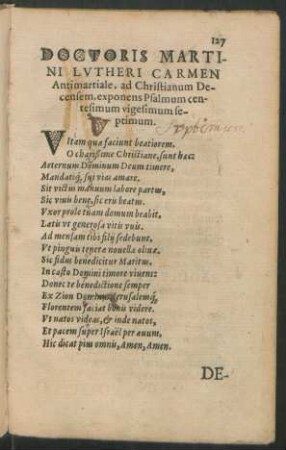 127
DOCTORIS MARTI-
NI LVTHERI CARMEN
Antimartiale, ad Christianum De-
censem, exponens Psalmum cen-
tesimum vigesimum se-
ptimum.
VItam qua faciunt beatiorem.
O charissime Christiane, sunt hæc:
Aeternum Dominum Deum timere,
Mandatiq́; sui vias amare.
Sic victus manuum labore partus,
Sic viuis bene, sic eris beatus.
Vxor prole tuam domum beabit,
Latis vt generosa vitis vuis.
Ad mensam tibi filij sedebunt,
Vt pinguis teneræ nouellæ oliuæ.
Sic fidus benedicitur Maritus.
In casto Domini timore viuens:
Donec te benedictione semper
Ex Zion Dominus, Ierusalemq́;
Florentem faciat bonis videre.
Vt natos videas, & inde natos,
Et pacem super Israël per æuum,
Hic dicat pius omnis, Amen, Amen.
DE-